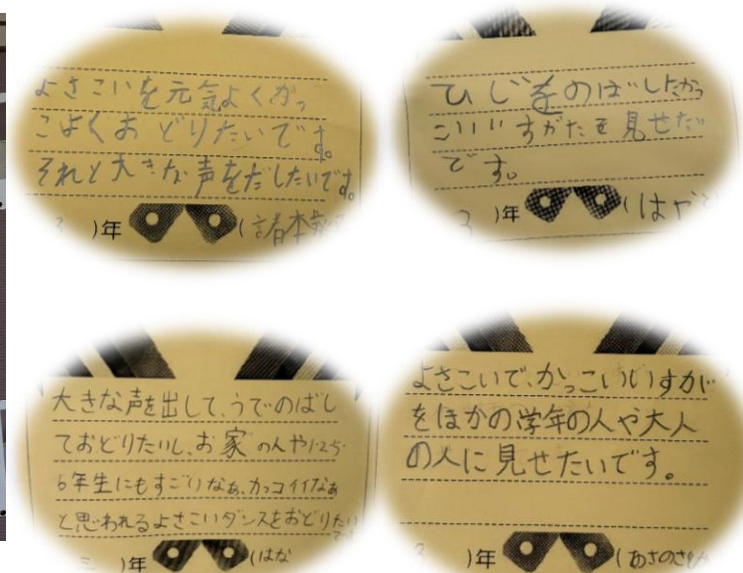 よさこいを元気よくかっ
こよくおどりたいです。
それと大きな声をだしたいです。
3 )年 (諸本
ひじをのばしたかっ
こいいすがたを見せたい
です。
3 )年 (はや
大きな声を出して、うでのばし
ておどりたいし、お家の人や1・2・5・
6年生にもすごいなぁ、カッコイイなぁ
と思われるよさこいダンスをおどりたい
です
三 )年 (はな
よさこいで、かっこいいすが
をほかの学年の人や大人
の人に見せたいです。
3 )年 (あさのさ